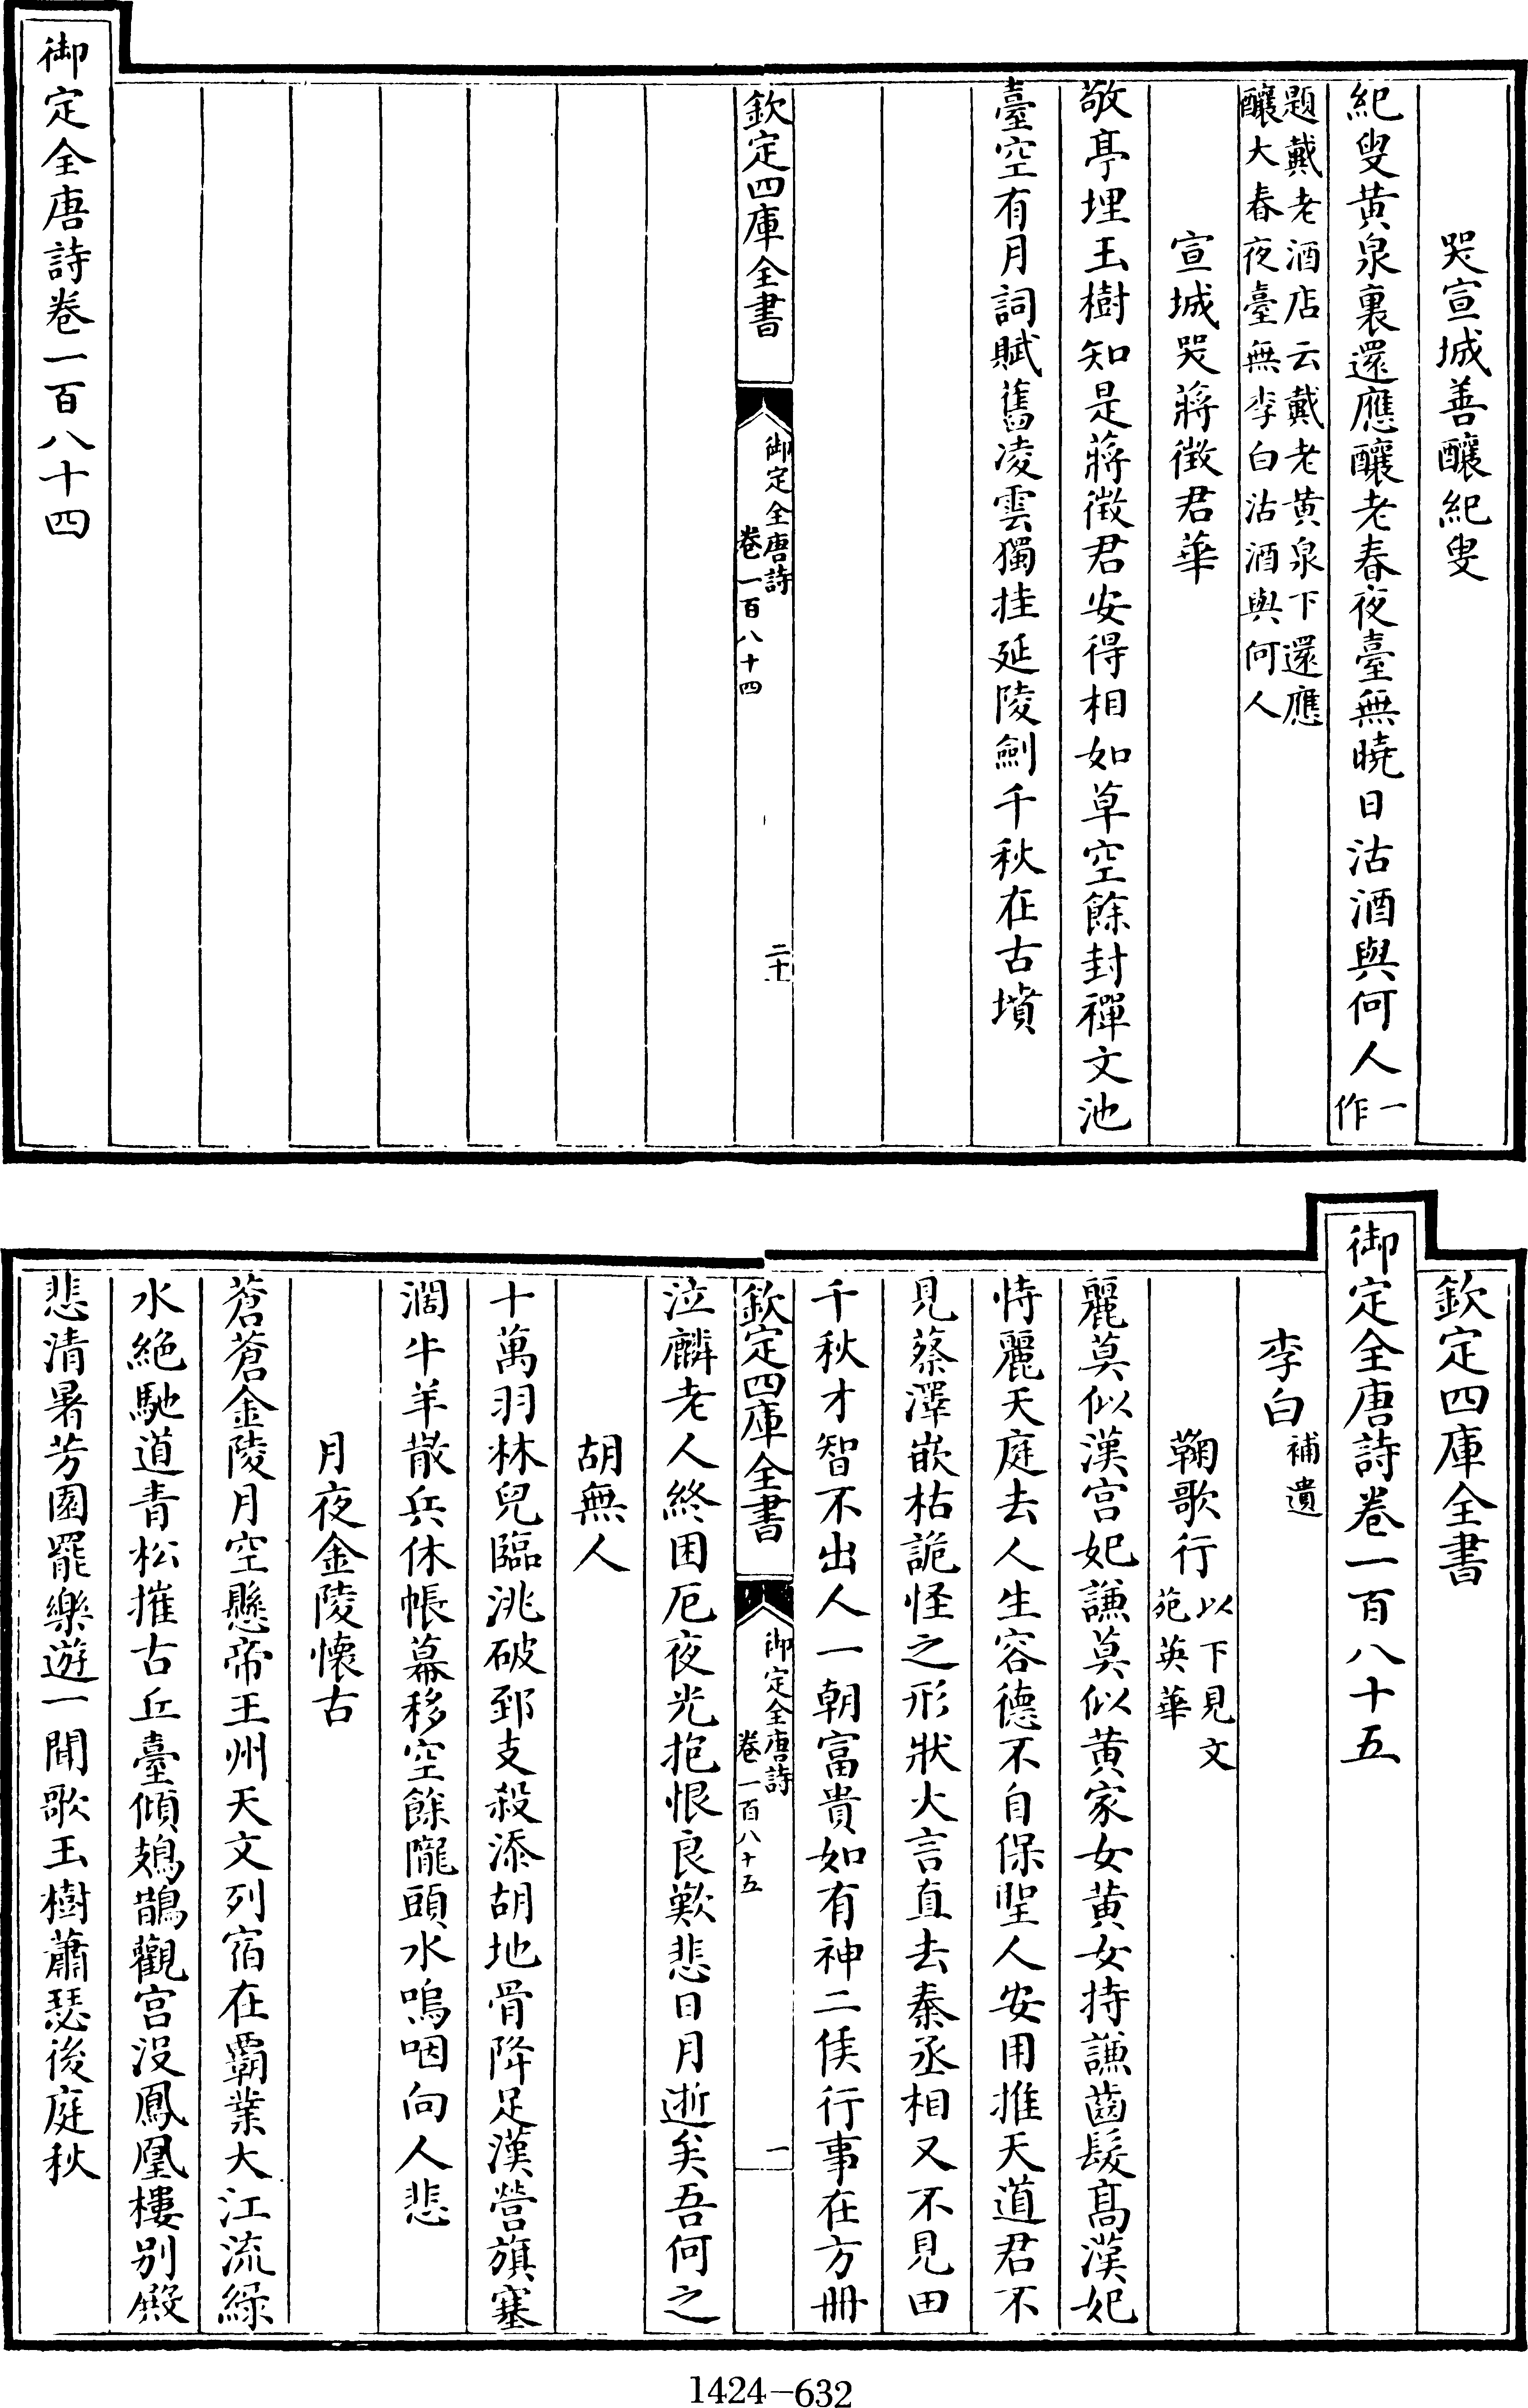 哭宣城善釀紀叟
紀叟黄泉裏還應釀老春夜臺無曉日沽酒與何人一作
題戴老酒店云戴老黄泉下還應
釀大春夜臺無李白沽酒與何人
宣城哭蔣徵君華
敬亭埋玉樹知是蔣徵君安得相如草空餘封禪文池
臺空有月詞賦舊凌雲獨挂延陵劍千秋在古墳
欽定四庫全書
御定全唐詩
卷一百八十四
二十
御定全唐詩卷一百八十四
欽定四庫全書
御定全唐詩卷一百八十五
李白補遺
鞠歌行以下見文苑英華
麗莫似漢宫妃謙莫似黄家女黄女持謙齒髮高漢妃
恃麗天庭去人生容德不自保聖人安用推天道君不
見蔡澤嵌枯詭怪之形狀大言直去秦丞相又不見田
千秋才智不出人一朝富貴如有神二侯行事在方冊
欽定四庫全書
御定全唐詩
卷一百八十五
一
泣麟老人終困厄夜光抱恨良歎悲日月逝矣吾何之
胡無人
十萬羽林兒臨洮破郅支殺添胡地骨降足漢營旗塞
濶牛羊散兵休帳幕移空餘隴頭水嗚咽向人悲
月夜金陵懷古
蒼蒼金陵月空懸帝王州天文列宿在霸業大江流綠
水絶馳道青松摧古丘臺傾鳷鵲觀宫沒鳳凰樓别殿
悲清暑芳園罷樂遊一聞歌玉樹蕭瑟後庭秋
1424-632